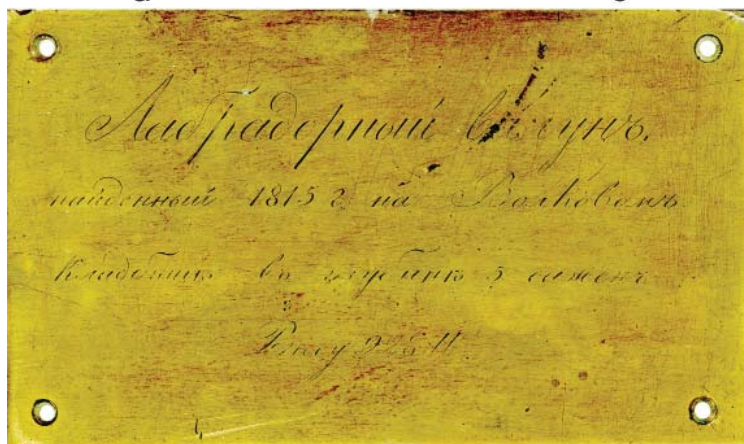 Лабрадорный валунъ.
найденный 1815 г. на Волковомъ
кладбищѣ въ глубинѣ 5 сажень
Вѣсу